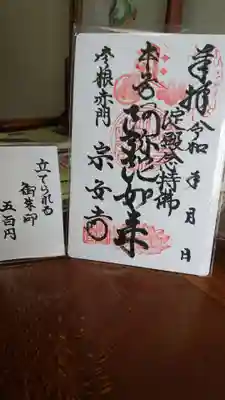 奉拝 令和 年 月 日
淀殿念持佛
本尊 阿弥陀如来
彦根赤門 宗安寺
立てられる
御朱印
五百円